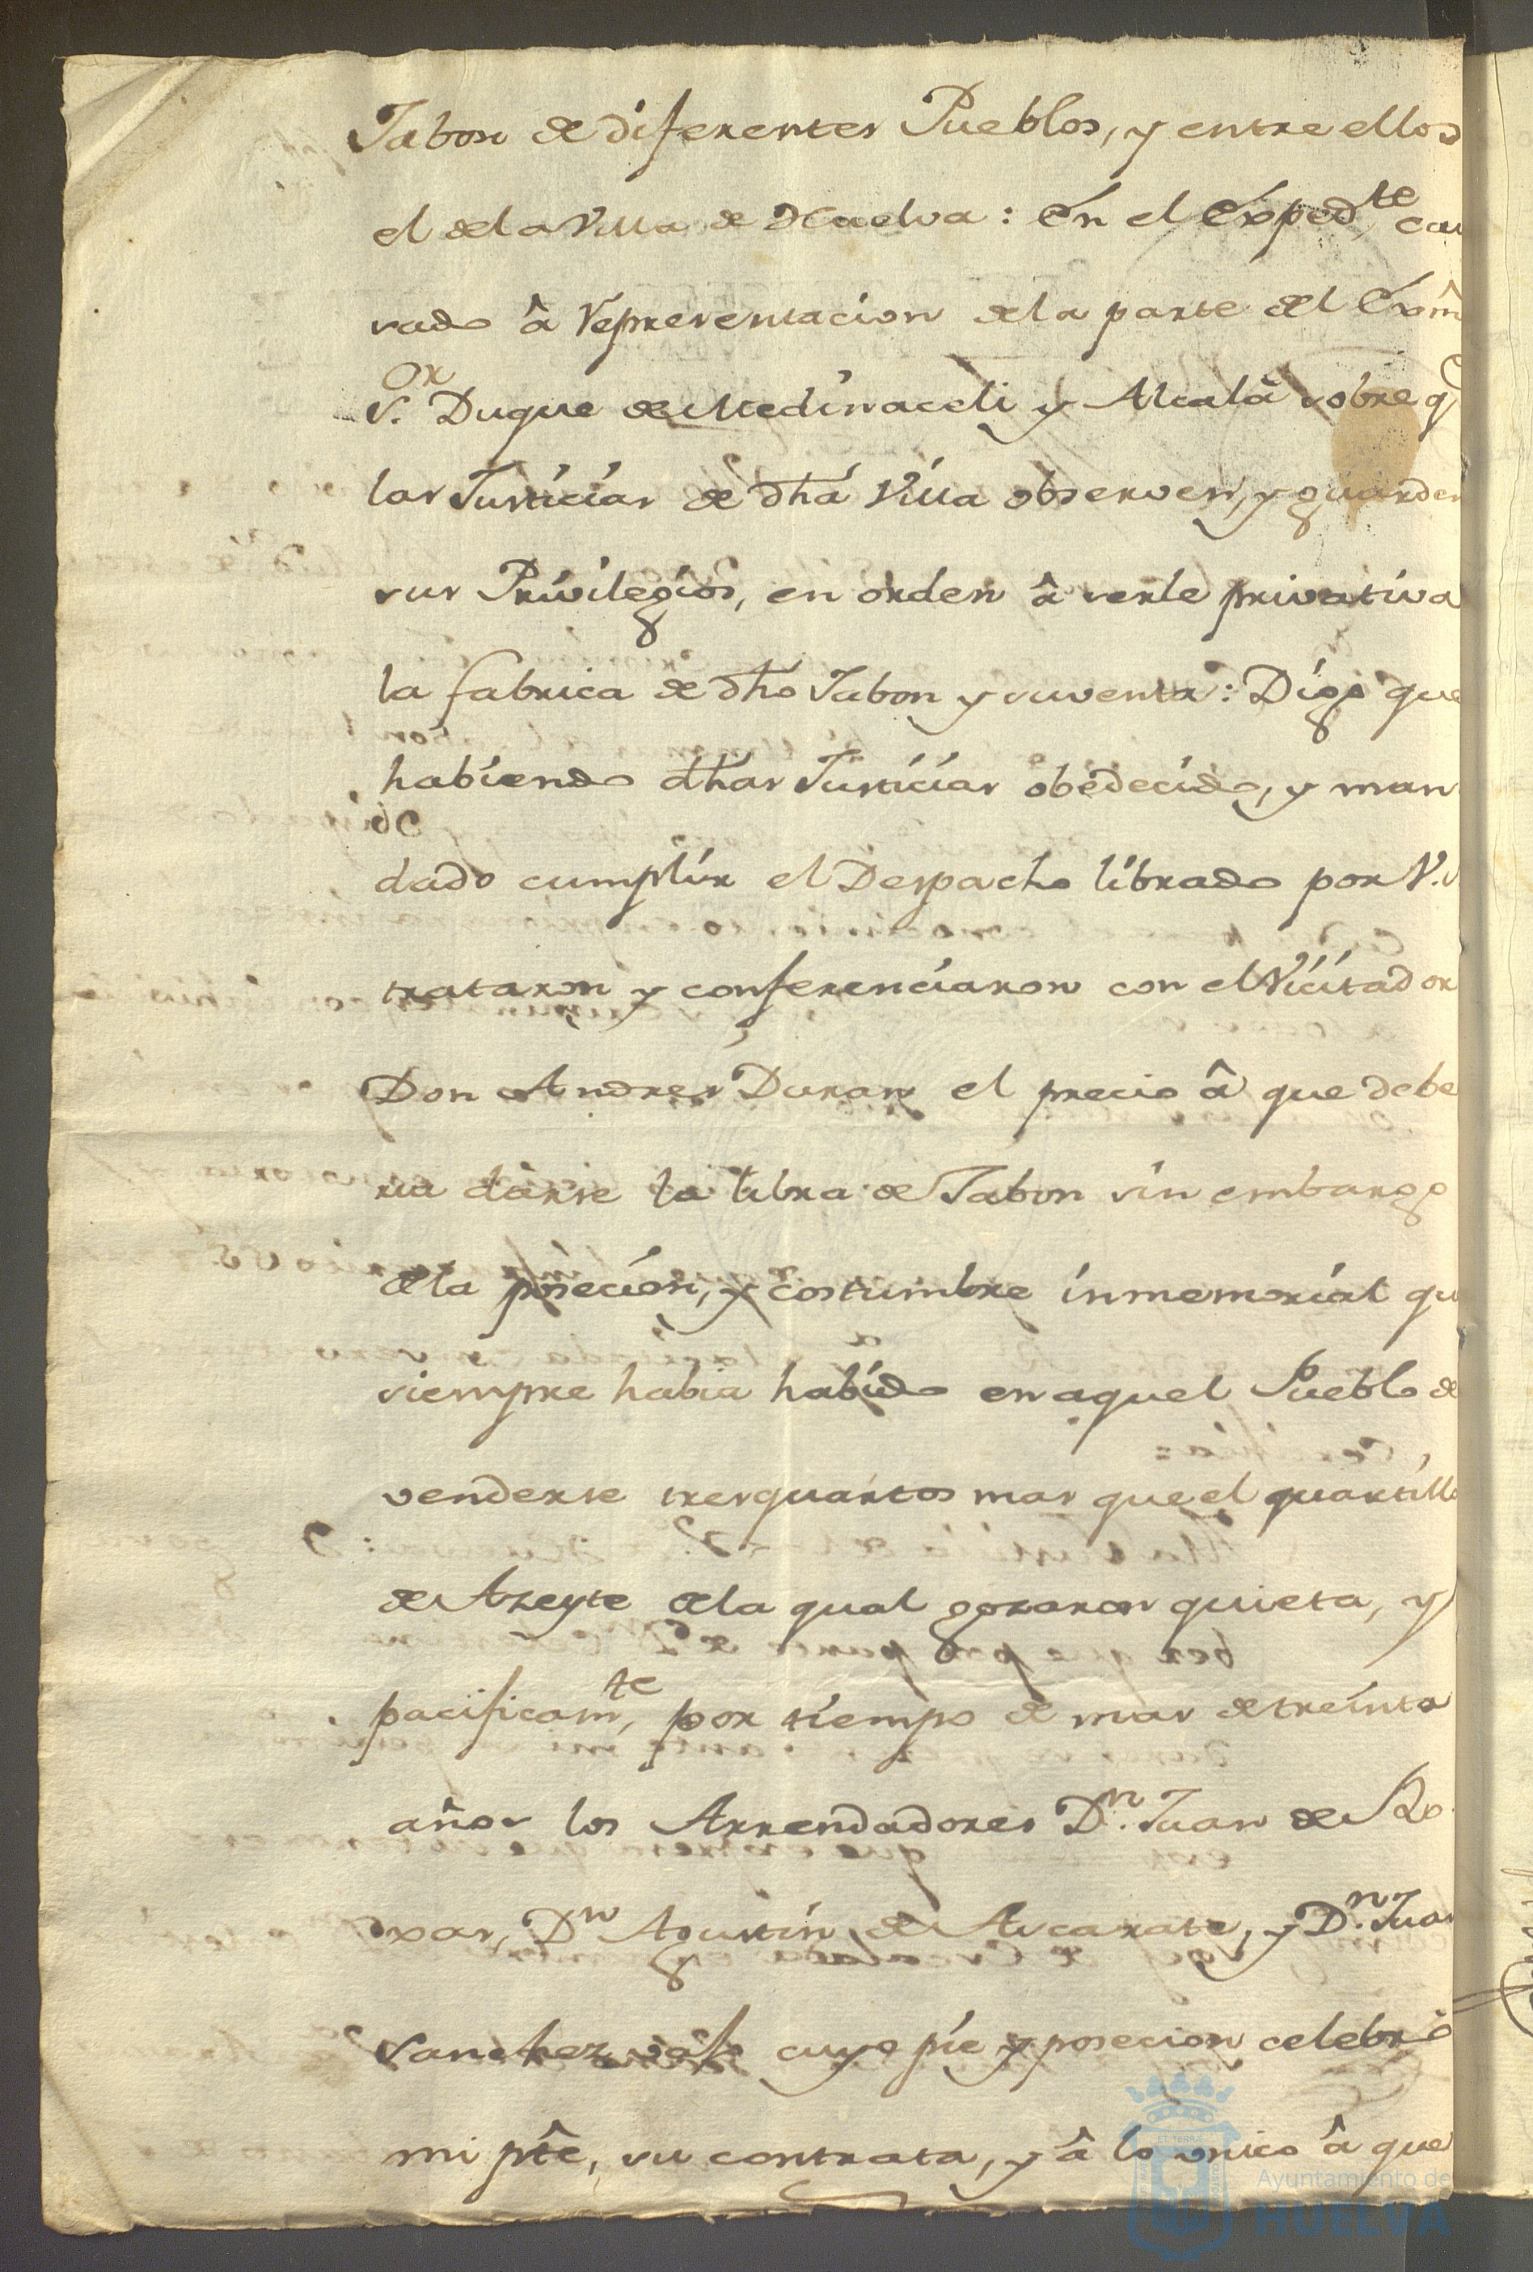 Jabon de diferentes Pueblos, y entre ellos
el de la Villa de Huelva: En el Exped.te cau
sado â representacion de la parte del Exm̂
S.or Duque de Medinaceli y Alcalâ sobre q.e
las Justicias de dha Villa observen, y guarden
sus Privilegios, en orden â serle privativa
la fabrica de dho Jabon y su venta: Digo que
habiendo dhas Justicias obedecido, y man
dado cumplir el Despacho librado por V.S.
trataron y conferenciaron con el Vicitador
Don Andres Duran el precio â que debe
ria darse la libra de Jabon sin embargo
de la posecion, y costumbre inmemorial qu
siempre habia habido en aquel Pueblo de
venderse tres quartos mas que el quartillo
de Azeyte de la qual gozaron quieta, y
pacificam.te por tiempo de mas de treinta
años los Arrendadores D.n Juan de Ro
xas, D.n Agustin de Ascarate, y D.n Juan
Sanchez cuyo pie y posecion celebró
mi pte, su contrata, y â lo unico â que
Ayuntamiento de
HUELVA